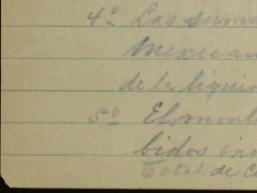 4º Las suma
Mexican
de la liquid
5º El mont
bidos inc
Total de C